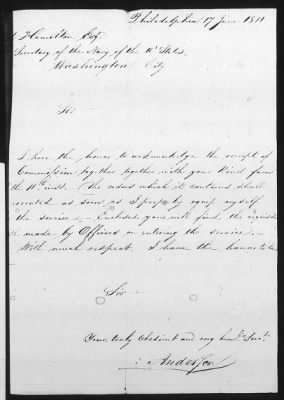 Philadelphia 17 June 1811
Hamilton Esqr
Secretary of the Navy of the U. States
Washington City
Sir
I have the honor to acknowledge the receipt of
Commission together together with your kind favor
the 11th inst. The orders which it contains shall
executed as soon as I properly equip myself
the service. Enclosed you will find the
made by Officers on entering the service.
With much respect I have the honor to be
Sir
Your truly obedient and very humble Servt
Anderson